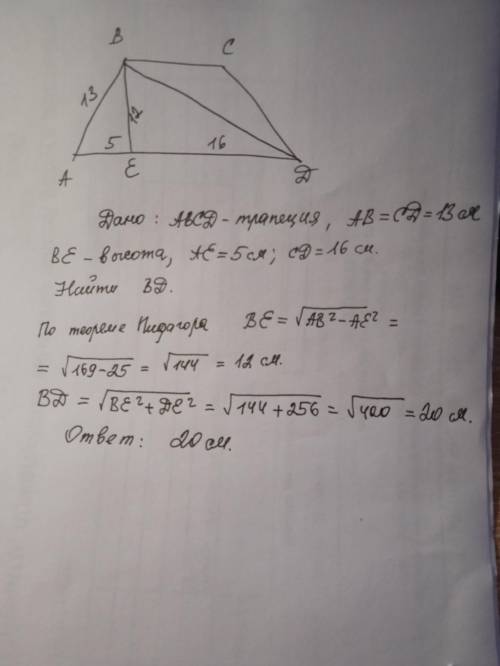 B C
13 12
5 16
A E D
Дано: ABCD - трапеция, AB = CD = 13 см
BE - высота, AE = 5 см; CD = 16 см.
Найти BD.
По теореме Пифагора BE = √AB² - AE² =
= √169-25 = √144 = 12 см.
BD = √BE² + DE² = √144 + 256 = √400 = 20 см.
Ответ: 20 см.